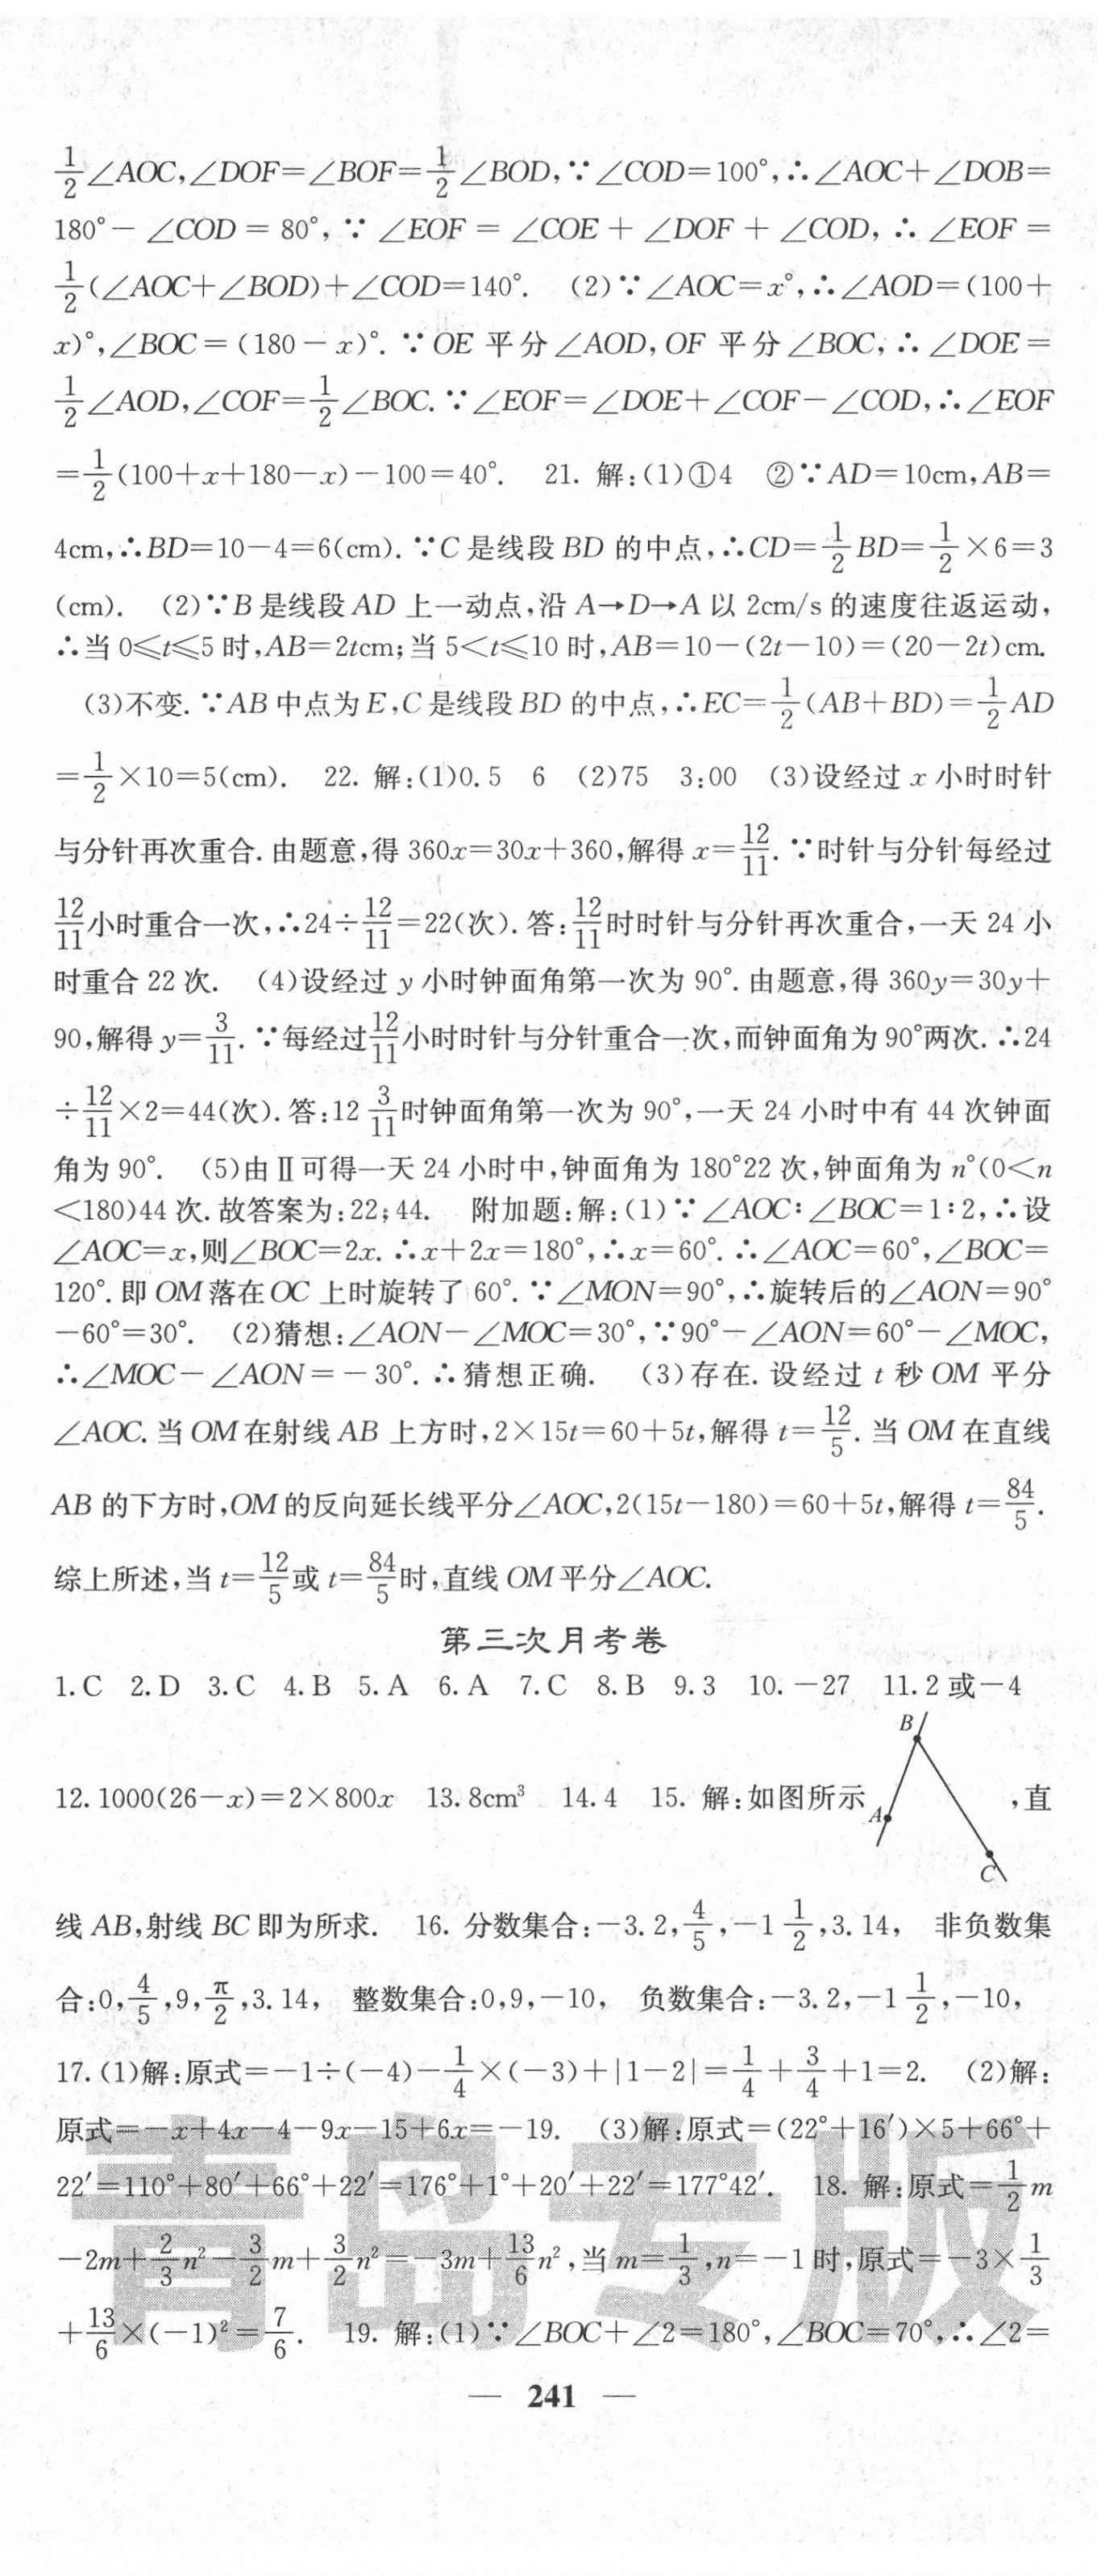 $\frac{1}{2}$∠AOC,∠DOF=∠BOF=$\frac{1}{2}$∠BOD,∵∠COD=100°,∴∠AOC+∠DOB=
180°-∠COD=80°,∵∠EOF=∠COE+∠DOF+∠COD,∴∠EOF=
$\frac{1}{2}$(∠AOC+∠BOD)+∠COD=140°. (2)∵∠AOC=x°,∴∠AOD=(100+
x)°,∠BOC=(180-x)°.∵OE平分∠AOD,OF平分∠BOC,∴∠DOE=
$\frac{1}{2}$∠AOD,∠COF=$\frac{1}{2}$∠BOC.∵∠EOF=∠DOE+∠COF-∠COD,∴∠EOF
=$\frac{1}{2}$(100+x+180-x)-100=40°. 21. 解:(1)①4 ②∵AD=10cm,AB=
4cm,∴BD=10-4=6(cm).∵C是线段BD的中点,∴CD=$\frac{1}{2}$BD=$\frac{1}{2}$×6=3
(cm). (2)∵B是线段AD上一动点,沿A→D→A以2cm/s的速度往返运动,
∴当0≤t≤5时,AB=2tcm;当5<t≤10时,AB=10-(2t-10)=(20-2t)cm.
(3)不变.∵AB中点为E,C是线段BD的中点,∴EC=$\frac{1}{2}$(AB+BD)=$\frac{1}{2}$AD
=$\frac{1}{2}$×10=5(cm). 22. 解:(1)0.5 6 (2)75 3:00 (3)设经过x小时时针
与分针再次重合.由题意,得360x=30x+360,解得x=$\frac{12}{11}$.∵时针与分针每经过
$\frac{12}{11}$小时重合一次,∴24÷$\frac{12}{11}$=22(次).答:$\frac{12}{11}$时时针与分针再次重合,一天24小
时重合22次. (4)设经过y小时钟面角第一次为90°.由题意,得360y=30y+
90,解得y=$\frac{3}{11}$.∵每经过$\frac{12}{11}$小时时针与分针重合一次,而钟面角为90°两次.∴24
÷$\frac{12}{11}$×2=44(次).答:12$\frac{3}{11}$时钟面角第一次为90°,一天24小时中有44次钟面
角为90°. (5)由Ⅱ可得一天24小时中,钟面角为180°22次,钟面角为n°(0<n
<180)44次.故答案为:22;44. 附加题:解:(1)∵∠AOC:∠BOC=1:2,∴设
∠AOC=x,则∠BOC=2x.∴x+2x=180°,∴x=60°.∴∠AOC=60°,∠BOC=
120°.即OM落在OC上时旋转了60°.∵∠MON=90°,∴旋转后的∠AON=90°
-60°=30°. (2)猜想:∠AON-∠MOC=30°,∵90°-∠AON=60°-∠MOC,
∴∠MOC-∠AON=-30°.∴猜想正确. (3)存在.设经过t秒OM平分
∠AOC.当OM在射线AB上方时,2×15t=60+5t,解得t=$\frac{12}{5}$.当OM在直线
AB的下方时,OM的反向延长线平分∠AOC,2(15t-180)=60+5t,解得t=$\frac{84}{5}$.
综上所述,当t=$\frac{12}{5}$或t=$\frac{84}{5}$时,直线OM平分∠AOC.
第三次月考卷
1.C 2.D 3.C 4.B 5.A 6.A 7.C 8.B 9.3 10.-27 11.2或-4
B
12.1000(26-x)=2×800x 13.8cm³ 14.4 15. 解:如图所示 A ,直
C
线AB,射线BC即为所求. 16. 分数集合:-3.2,$\frac{4}{5}$,-1$\frac{1}{2}$,3.14, 非负数集
合:0,$\frac{4}{5}$,9,$\frac{π}{2}$,3.14, 整数集合:0,9,-10, 负数集合:-3.2,-1$\frac{1}{2}$,-10,
17.(1)解:原式=-1÷(-4)-$\frac{1}{4}$×(-3)+|1-2|=$\frac{1}{4}$+$\frac{3}{4}$+1=2. (2)解:
原式=-x+4x-4-9x-15+6x=-19. (3)解:原式=(22°+16′)×5+66°+
22′=110°+80′+66°+22′=176°+1°+20′+22′=177°42′. 18. 解:原式=$\frac{1}{2}$m
-2m+$\frac{2}{3}$n²-$\frac{3}{2}$m+$\frac{3}{2}$n²=-3m+$\frac{13}{6}$n²,当m=$\frac{1}{3}$,n=-1时,原式=-3×$\frac{1}{3}$
+$\frac{13}{6}$×(-1)²=$\frac{7}{6}$. 19. 解:(1)∵∠BOC+∠2=180°,∠BOC=70°,∴∠2=
青岛专版
— 241 —